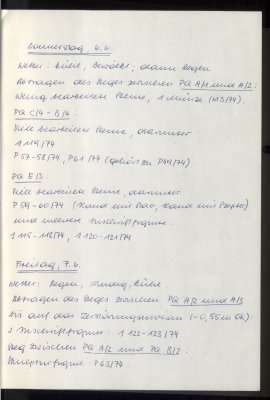 Donnerstag, 6.6.
Wetter: Kühl, bewölkt, dann Regen
Abtragen des Steges zwischen PQ A/1 und A/2:
Wenig bearbeitete Steine, 1 Münze (M3/74)
PQ C/4 - B/4:
Viele bearbeitete Steine, darunter
I 119/74
P 57-58/74, P 61/74 (gehört zu P49/74)
PQ E/3:
Viele bearbeitete Steine, darunter
P 59-60/74 (Hand mit Rest, Hand mit Zepter)
und mehrere Inschriftfragmente:
I 115-118/74, I 120-121/74
Freitag, 7.6.
Wetter: Regen, windig, kühl
Abtragen des Steges zwischen PQ A/2 und A/3
bis auf das Zerstörungsniveau (-0,55 m OK):
2 Inschriftfragmente: I 122-123/74
Steg zwischen PQ A/2 und PQ B/2:
Skulpturfragment: P 63/74